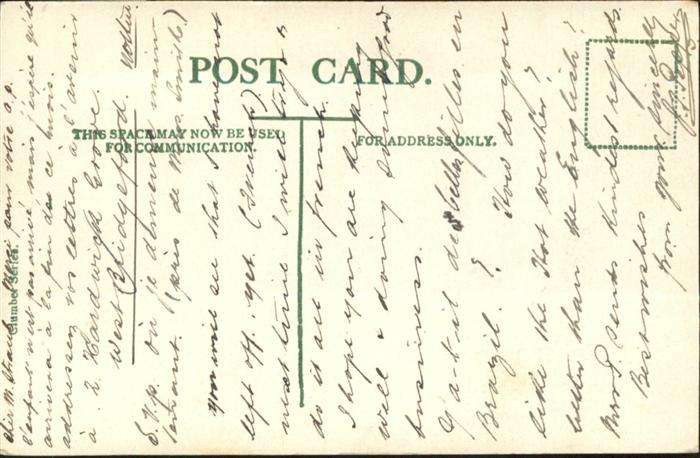 POST CARD.
THIS SPACE MAY NOW BE USED
FOR COMMUNICATION.
FOR ADDRESS ONLY.
Clumber Series.
Cher M. merci pour votre p.p.
l'enfant n'est pas arrivé mais j'espère qu'il
arrivera à la fin de ce mois.
addressez vos lettres à l'avenir
à 2. Hardwick Grove
West Bridgeford. Notts
S.V.p. où je demeure maintenant. (près de Mrs. Smith's)
you will see that I have not
left off yet. (French)
next time I will try &
do it all in french.
I hope you are keeping
well & doing some good
business.
Y a-t-il des belles filles en
Brazil? How do you
like the Hot weather?
better than the English!
Mrs S. sends kindest regards
Best wishes
from yours sincerely